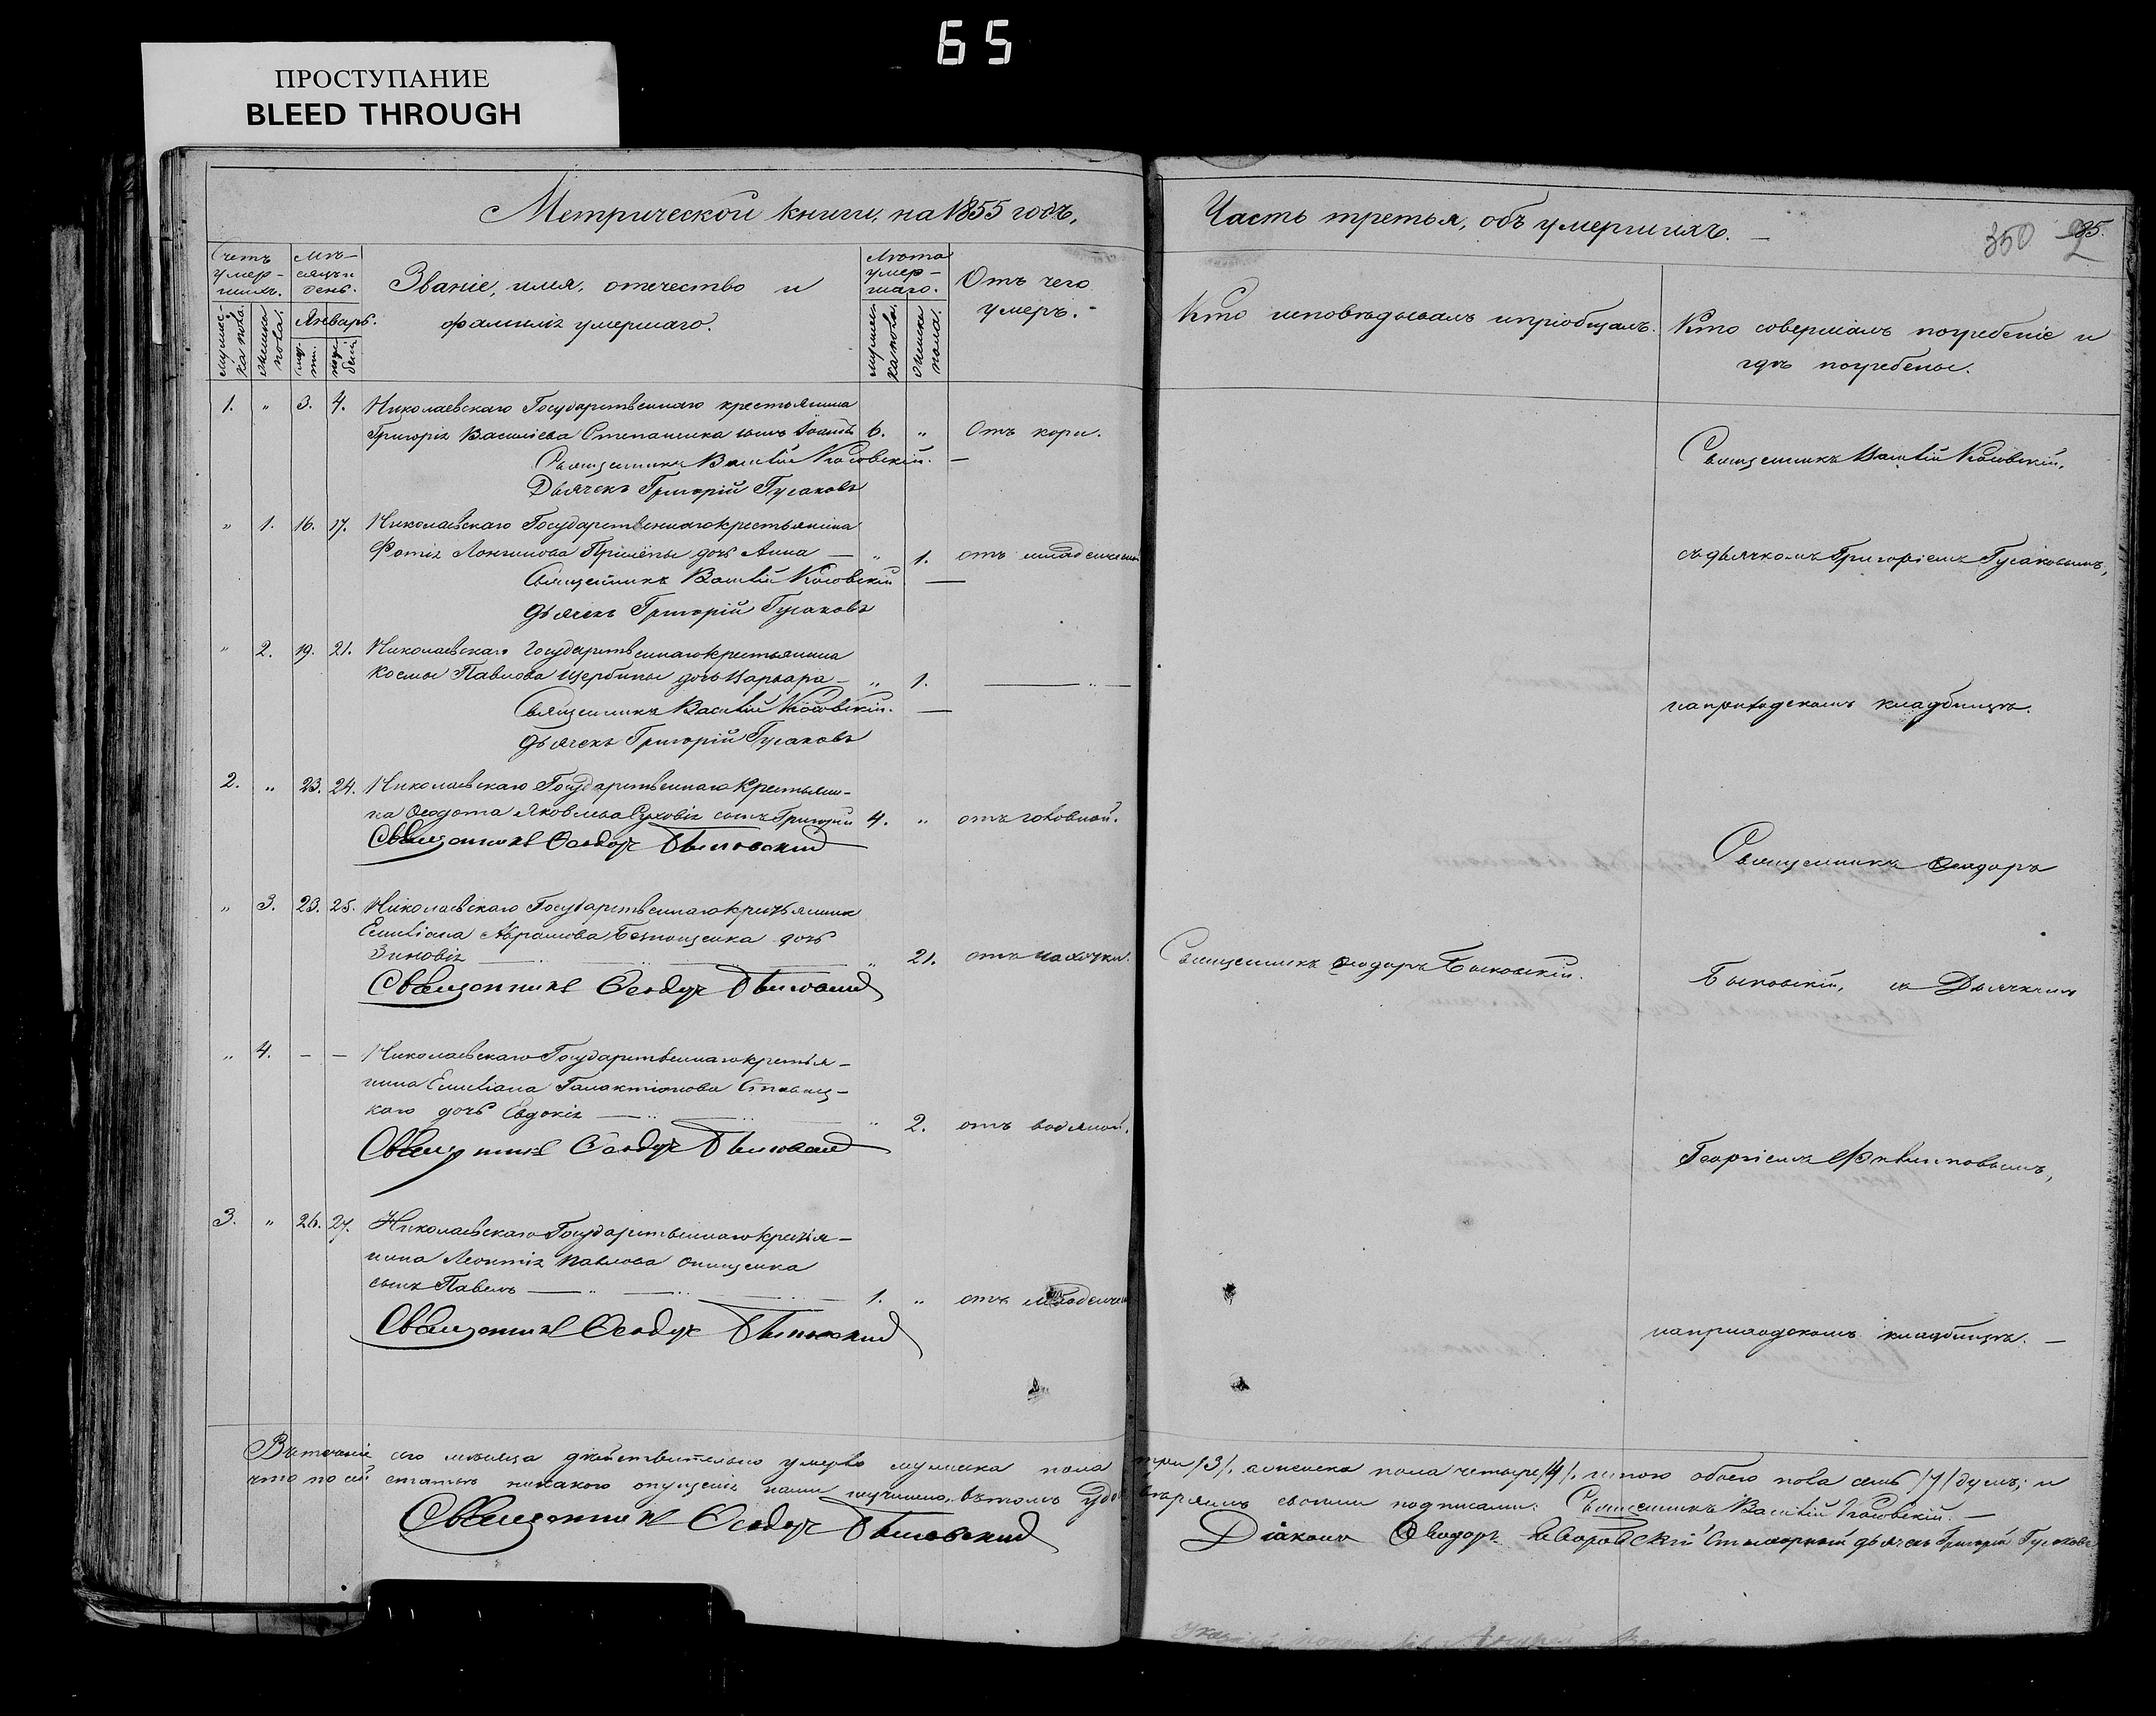 65
ПРОСТУПАНИЕ
BLEED THROUGH
Метрической книги, на 1855 годъ,
Часть третья, объ умершихъ. —
350
Счетъ умер-шихъ.
Мѣ-сяцъ и день.
Званіе, имя, отчество и
фамилія умершаго.
Лѣта умер-шаго.
Отъ чего
умеръ. -
Кто исповѣдывалъ и пріобщалъ.
Кто совершалъ погребеніе и
гдѣ погребены.
Январь.
мужес-ка пола.
женска пола.
1. " 3. 4. Николаевскаго Государственнаго крестьянина
Григорія Василіева Степаненка сынъ 6. " Отъ кори.
Священникъ Василій Косовскій. —
Дьячекъ Григорій Гусаковъ
Священникъ Василій Косовскій,
" 1. 16. 17. Николаевскаго Государственнаго крестьянина
Фотія Лонгинова дочь Анна — " 1. отъ младенческой
Священникъ Василій Косовскій —
Дьячекъ Григорій Гусаковъ
съ дьячкомъ Григоріемъ Гусаковымъ,
" 2. 19. 21. Николаевскаго Государственнаго крестьянина
Космы Павлова Щербины дочь Варвара — " 1. — " —
Священникъ Василій Косовскій. —
Дьячекъ Григорій Гусаковъ
на приходскомъ кладбищѣ.
2. " 23. 24. Николаевскаго Государственнаго Крестьяни-
на Ѳеодота Яковлева сынъ Григорій 4. " отъ головной.
Священникъ Ѳеодоръ Быковскій
Священникъ Ѳеодоръ
" 3. 23. 25. Николаевскаго Государственнаго крестьянина
Емиліана Абрамова дочь
Зиновія " 21. отъ чахотки.
Священникъ Ѳеодоръ Быковскій
Священникъ Ѳеодоръ Быковскій.
Быковскій, съ Дьячкомъ
" 4. — — Николаевскаго Государственнаго крестья-
нина Емиліана Галактіонова Ставиц-
каго дочь Евдокія " 2. отъ водяной.
Священникъ Ѳеодоръ Быковскій
Георгіемъ
3. " 26. 27. Николаевскаго Государственнаго крестья-
нина Леонтія Павлова Онищенка
сынъ Павелъ 1. " отъ младенчес
Священникъ Ѳеодоръ Быковскій
на приходскомъ кладбищѣ. —
Въ теченіе сего мѣсяца дѣйствительно умерло мужеска пола три /3/, женска пола четыре /4/, итого обоего пола семь /7/ душъ; и
что по сей статьѣ никакого опущенія нами не учинено, въ томъ удостовѣряемъ своими подписами: Священникъ Василій Косовскій. —
Священникъ Ѳеодоръ Быковскій
Діаконъ Ѳеодоръ дьячекъ Григорій Гусаковъ